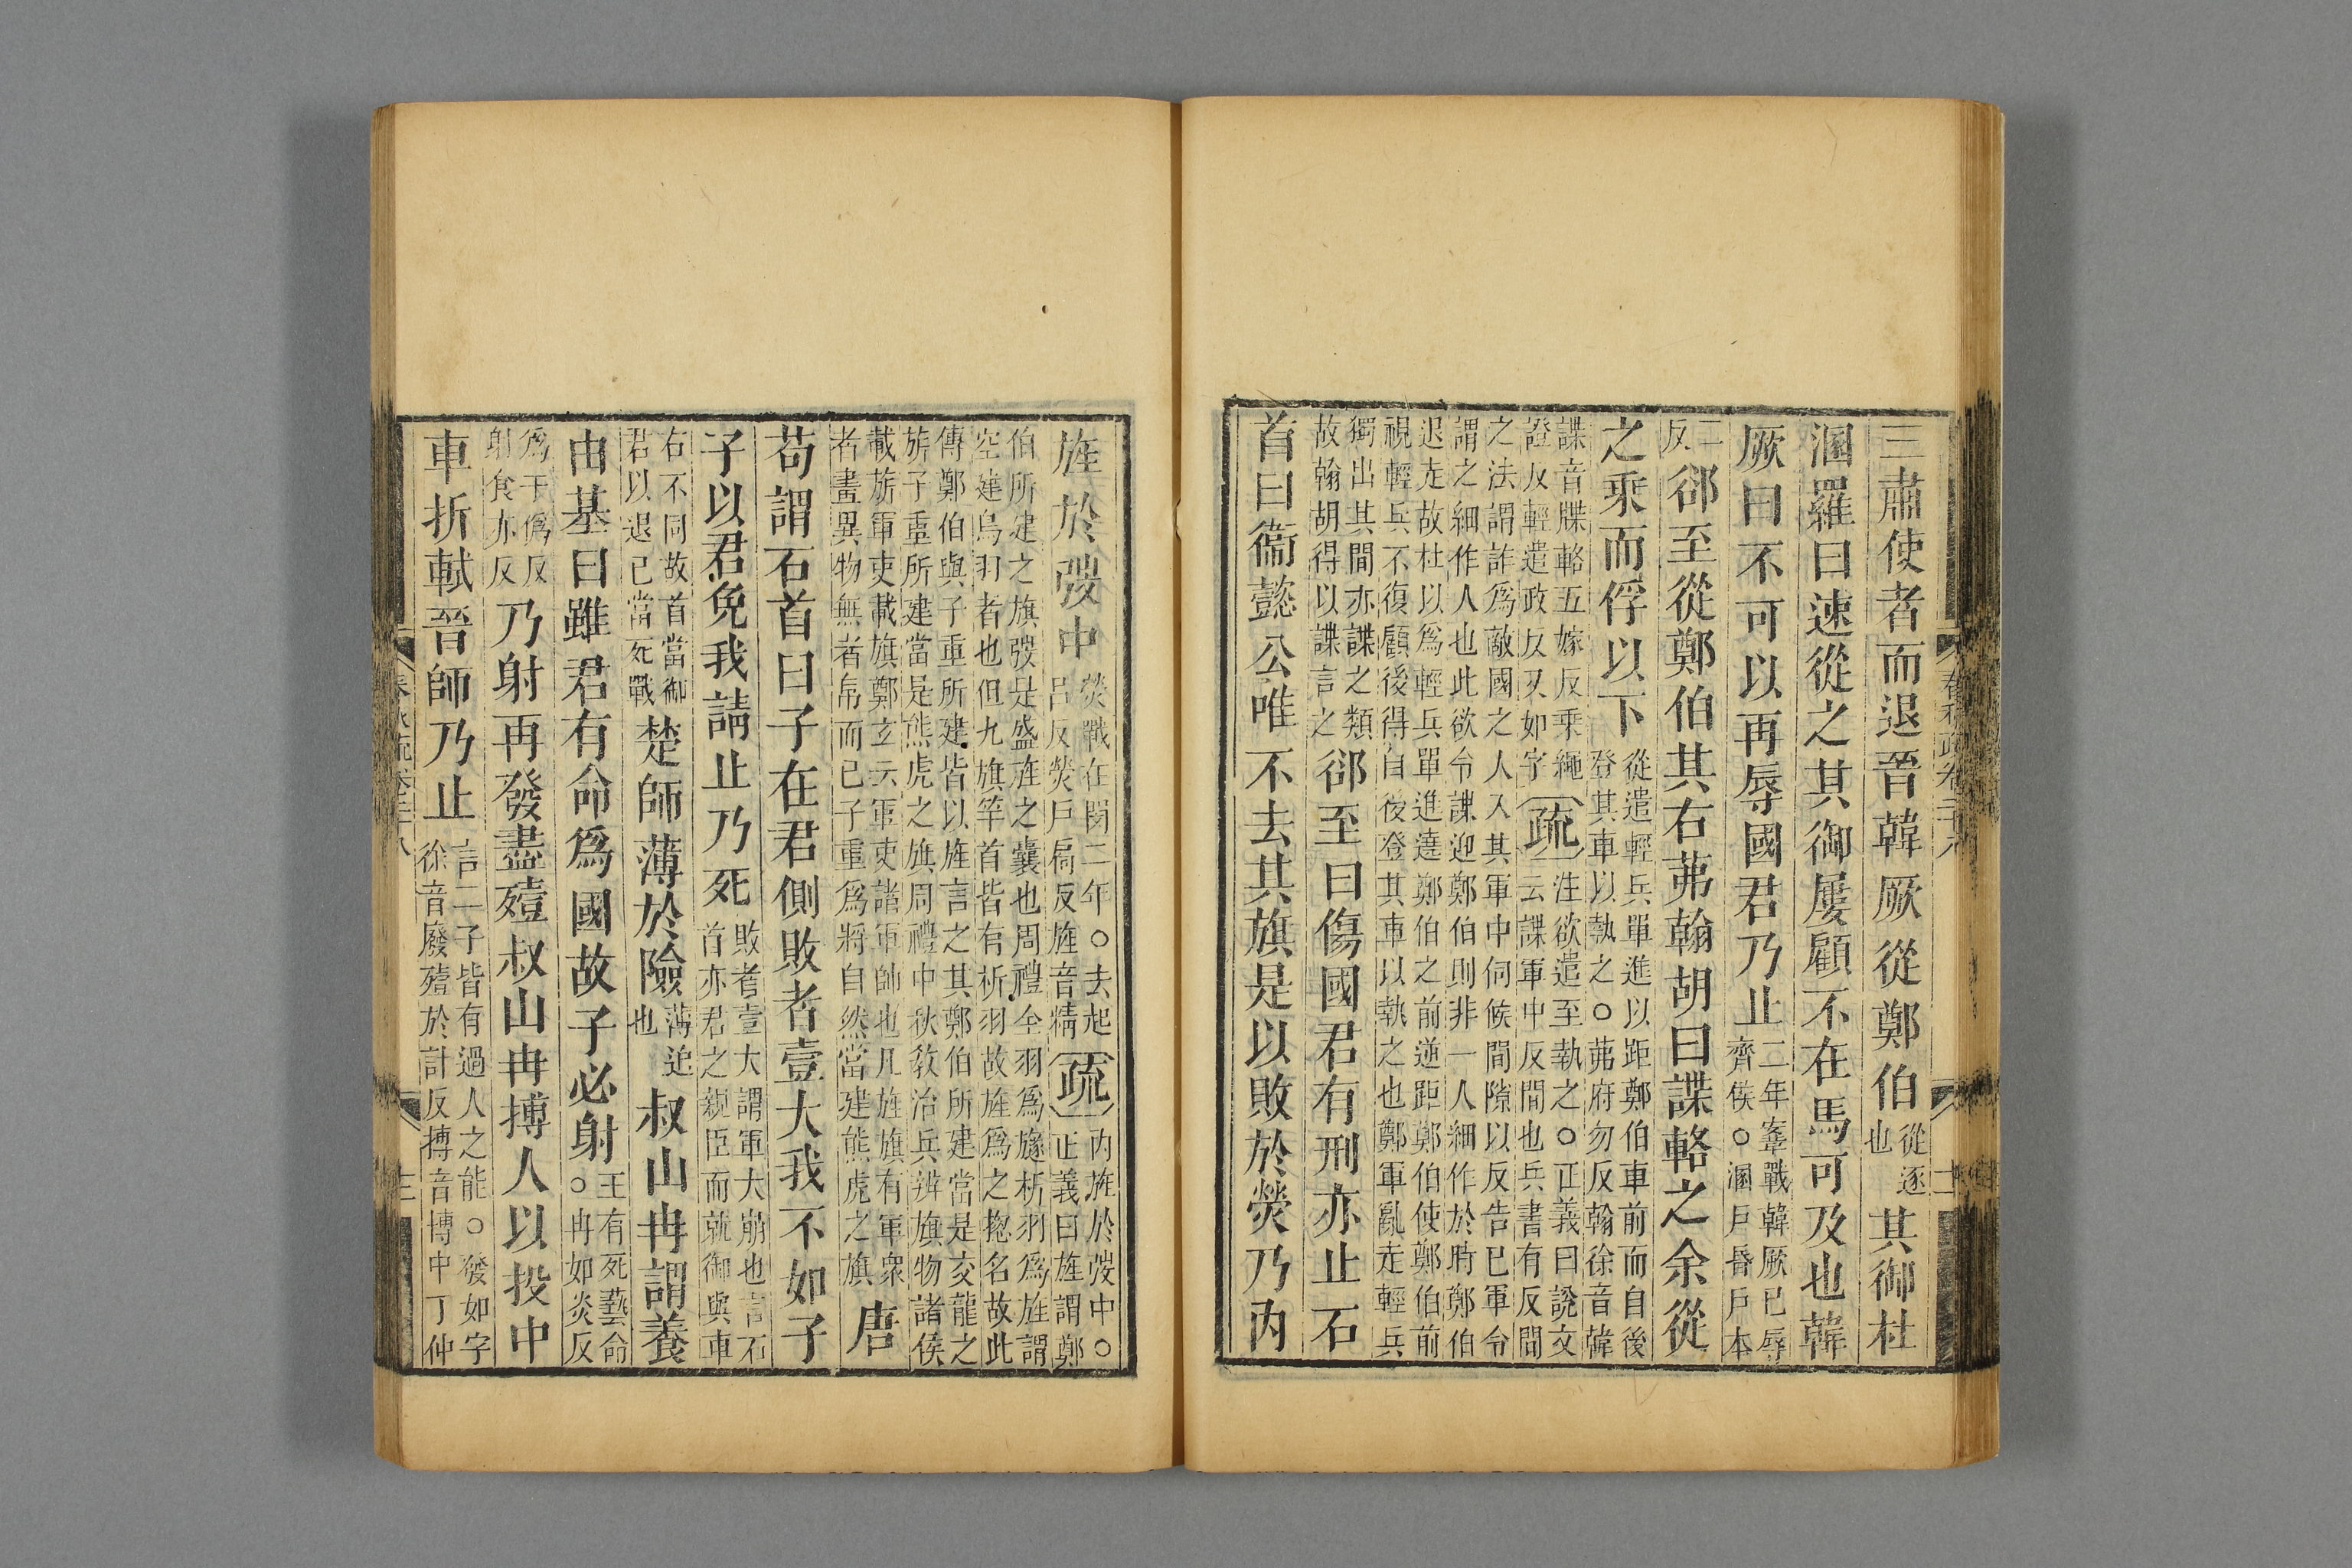 三肅使者而退晉韓厥從鄭伯
從逐
也
其御杜
溷羅曰速從之其御屢顧不在馬可及也韓
厥曰不可以再辱國君乃止
二年鞌戰韓厥已辱
齊侯○溷戶昬戶本
二
反
郤至從鄭伯其右茀翰胡曰諜輅之余從
之乘而俘以下
從遣輕兵單進以距鄭伯車前而自後
登其車以執之○茀府勿反翰徐音韓
諜音牒輅五嫁反乘繩
證反輕遣政反又如字
疏
注欲遣至執之○正義曰說文
云諜軍中反間也兵書有反間
之法謂詐爲敵國之人入其軍中伺候間隙以反告已軍令
謂之細作人也此欲令諜迎鄭伯則非一人細作於時鄭伯
退走故杜以爲輕兵單進遶鄭伯之前逆距鄭伯使鄭伯前
視輕兵不復顧後得自後登其車以執之也鄭軍亂走輕兵
獨出其間亦諜之類
故翰胡得以諜言之
郤至曰傷國君有刑亦止石
首曰衞懿公唯不去其旗是以敗於熒乃內
旌於弢中
熒戰在閔二年○去起
呂反熒戶扃反旌音精
疏
內旌於弢中○
正義曰旌謂鄭
伯所建之旗弢是盛旌之囊也周禮全羽爲旞析羽爲旌謂
空建鳥羽者也但九旗竿首皆有析羽故旌爲之揔名故此
傳鄭伯與子重所建皆以旌言之其鄭伯所建當是交龍之
旂子重所建當是熊虎之旗周禮中秋敎治兵辨旗物諸侯
載旂軍吏載旗鄭玄云軍吏諸軍帥也凡旌旗有軍衆
者畫異物無者帛而已子重爲將自然當建熊虎之旗
唐
苟謂石首曰子在君側敗者壹大我不如子
子以君免我請止乃死
敗者壹大謂軍大崩也言石
首亦君之親臣而就御與車
右不同故首當御
君以退已當死戰
楚師薄於險
薄迫
也
叔山冉謂養
由基曰雖君有命爲國故子必射
王有死藝命
○冉如炎反
爲于僞反
射食亦反
乃射再發盡殪叔山冉搏人以投中
車折軾晉師乃止
言二子皆有過人之能○發如字
徐音廢殪於計反搏音博中丁仲
春秋疏卷二十八